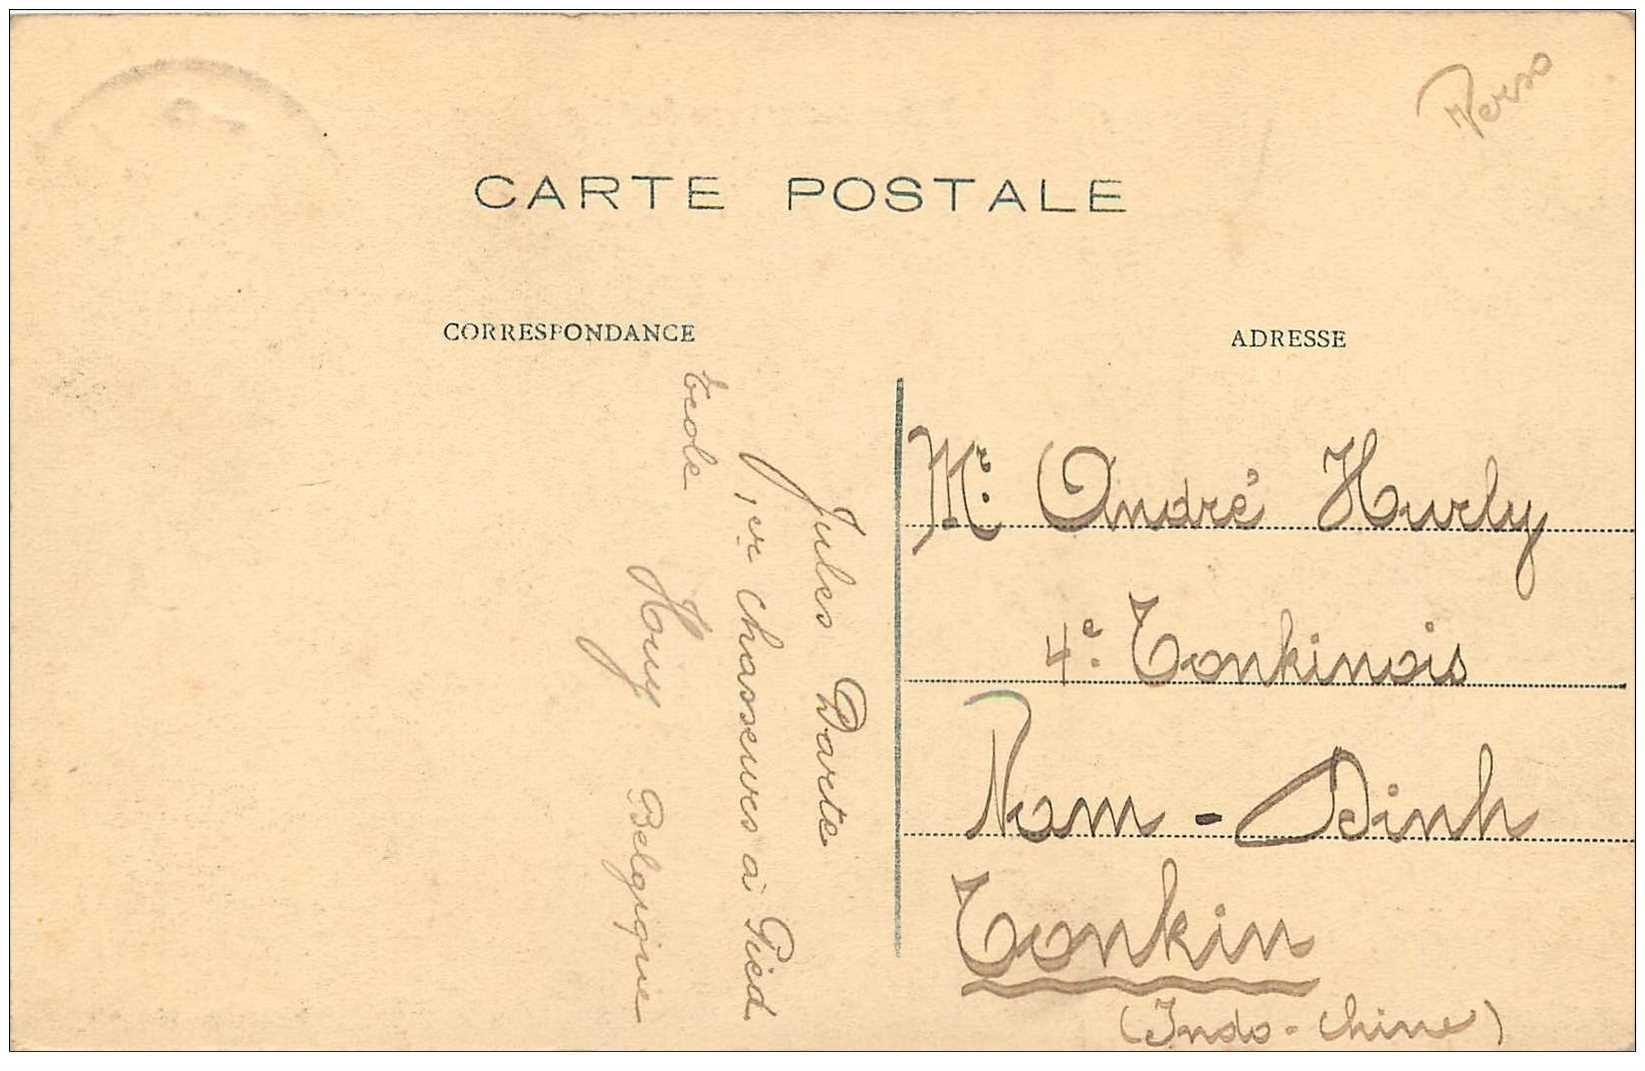 Perso
CARTE POSTALE
CORRESPONDANCE
ADRESSE
Jules Darte
1er chasseurs à Pied
Ecole
Houy Belgique
Mr. André Hurly
4e. Tonkinois
Nam - Dinh
Tonkin
(Indo - Chine)